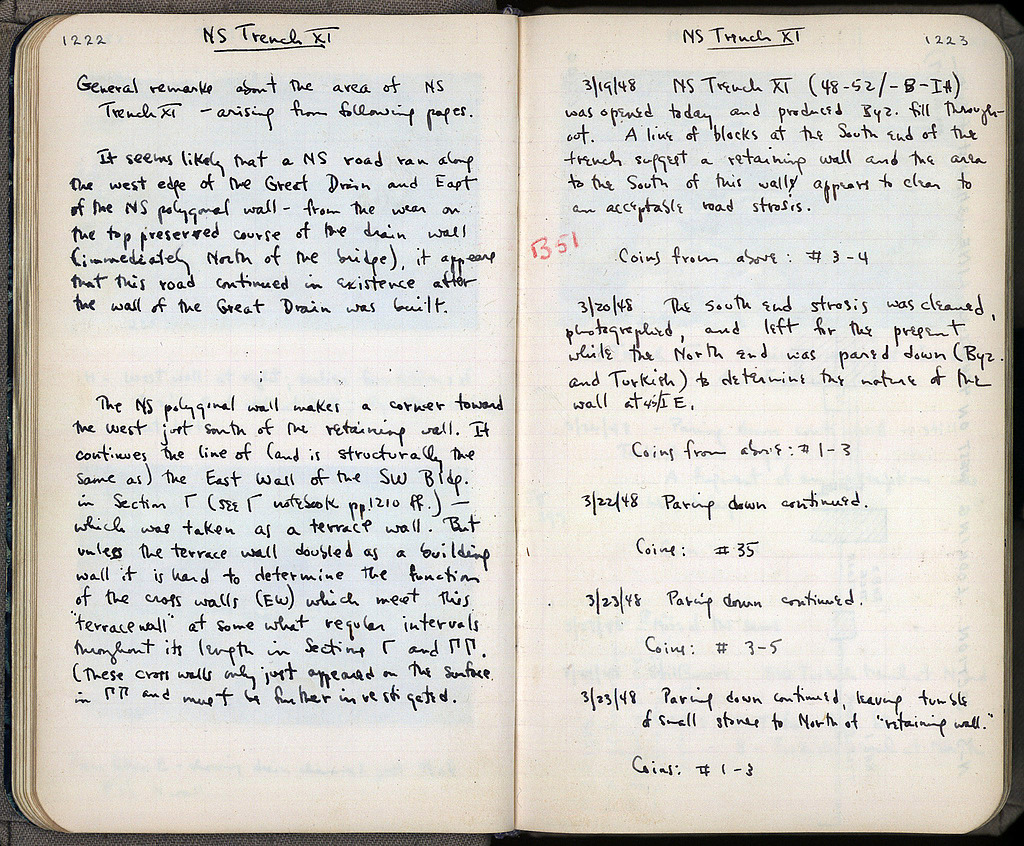 1222
NS Trench XI
General remarks about the area of NS
Trench XI – arising from following pages.
It seems likely that a NS road ran along
the west edge of the Great Drain and East
of the NS polygonal wall – from the wear on
the top preserved course of the drain wall
(immediately North of the bridge), it appears
that this road continued in existence after
the wall of the Great Drain was built.
The NS polygonal wall makes a corner toward
the west just south of the retaining wall. It
continues the line of (and is structurally the
same as) the East Wall of the SW Bldg.
in Section Γ (see Γ notebook pp. 1210 ff.) —
which was taken as a terrace wall. But
unless the terrace wall doubled as a building
wall it is hard to determine the function
of the cross walls (EW) which meet this
"terrace wall" at some what regular intervals
throughout its length in Sections Γ and ΠΠ.
(These cross walls only just appeared on the surface
in ΠΠ and must be further investigated.
NS Trench XI
1223
3/19/48 NS Trench XI (48-52/-B-IH)
was opened today and produced Byz. fill through-
out. A line of blocks at the South end of the
trench suggest a retaining wall and the area
to the South of this wall appears to clear to
an acceptable road strosis.
B51
Coins from above: # 3-4
3/20/48 The South end strosis was cleaned,
photographed, and left for the present
while the North end was pared down (Byz.
and Turkish) to determine the nature of the
wall at 45/IE.
Coins from above: # 1-3
3/22/48 Paring down continued.
Coins: # 35
3/23/48 Paring down continued.
Coins: # 3-5
3/23/48 Paring down continued, leaving tumble
of small stones to North of "retaining wall."
Coins: # 1-3